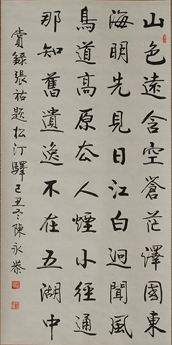 山色遠含空蒼茫澤國東
海明先見日江白迥聞風
鳥道高原去人煙小徑通
那知舊遺逸不在五湖中
賞錄張祜題松汀驛己丑冬陳永恭